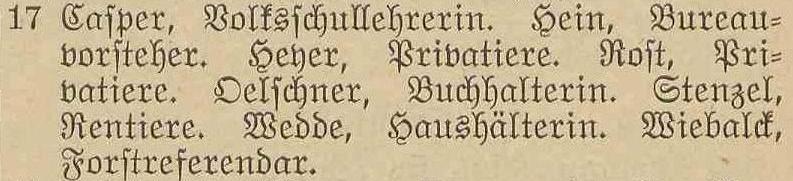 17 Caſper, Volksſchullehrerin. Hein, Bureau⸗
vorſteher. Heyer, Privatiere. Roſt, Pri⸗
vatiere. Oelſchner, Buchhalterin. Stenzel,
Rentiere. Wedde, Haushälterin. Wiebalck,
Forſtreferendar.